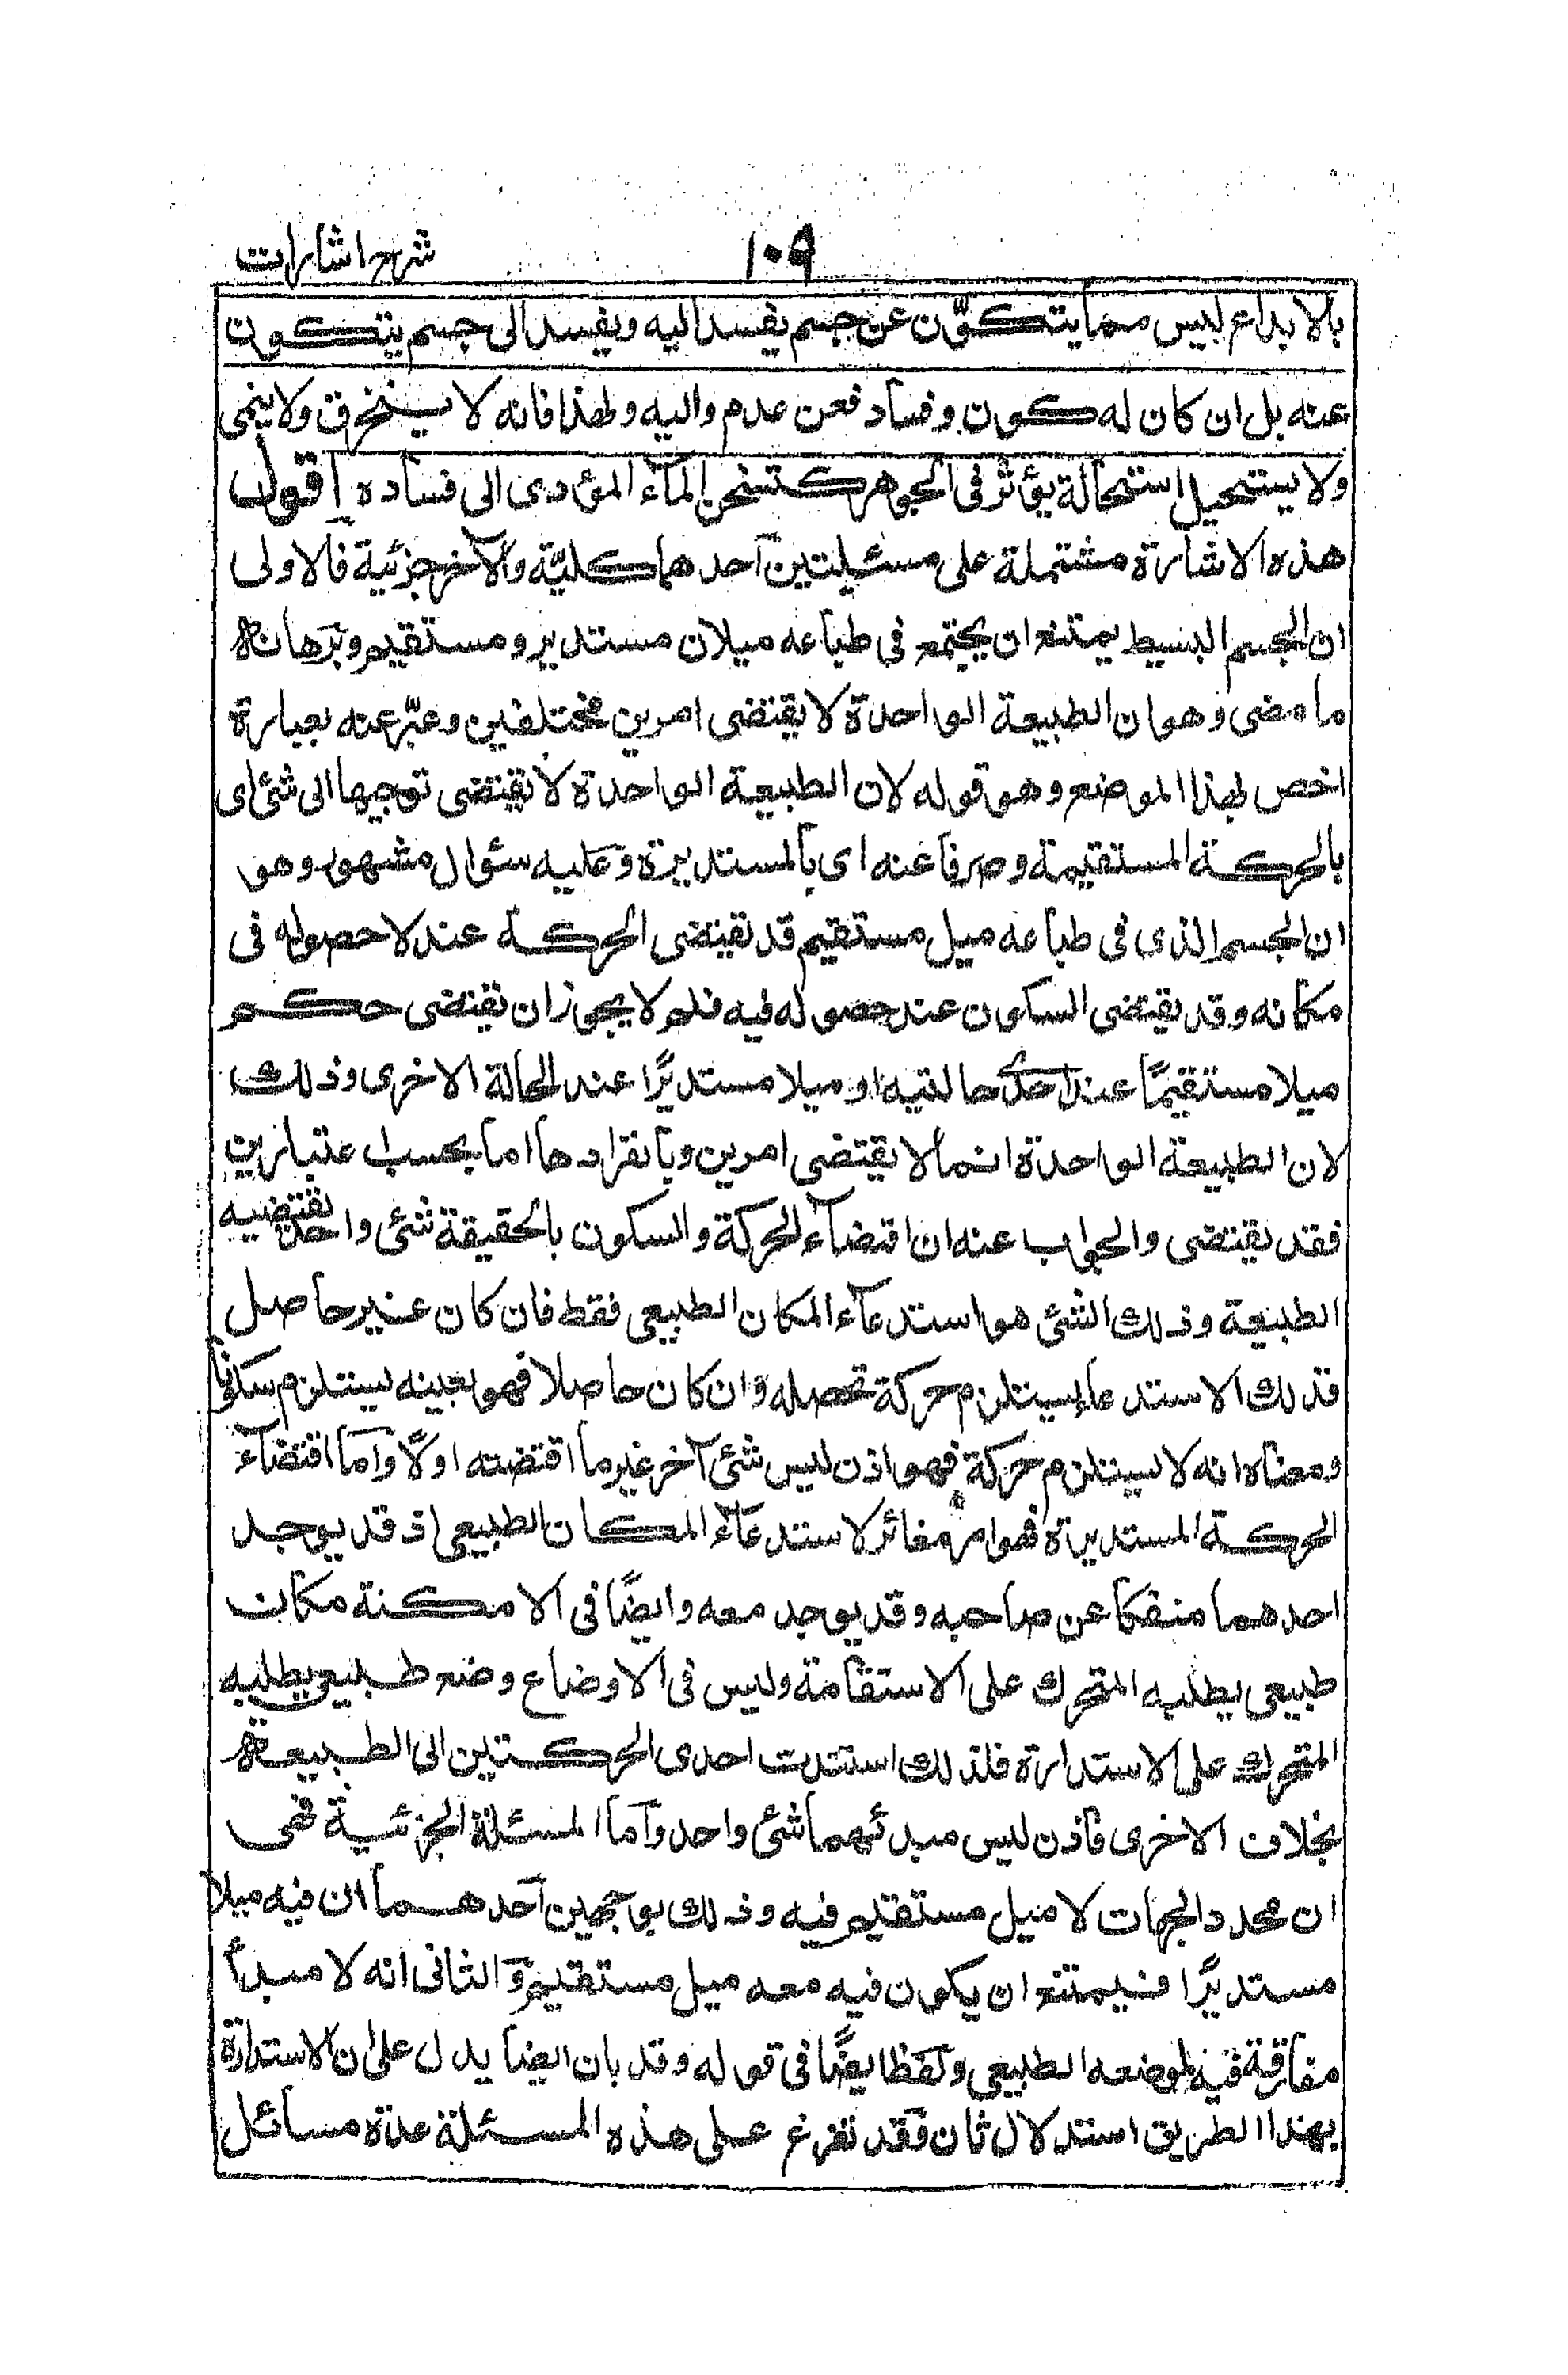 شرح اشارات
١٠٩
بالابداع ليس مما يتكوّن عن جسم يفسد اليه ويفسد الى جسم يتكون
عنه بل ان كان له كون وفساد فعن عدم واليه ولهذا فانه لا ينخرق ولا ينمى
ولا يستحيل استحالة يؤثر فى الجوهر كتسخن المآء المؤدى الى فساده اقول
هذه الاشارة مشتملة على مسئيلتين آحدهما كليّة والآخر جزئية فالاولى
ان الجسم البسيط يمتنع ان يجتمع فى طباعه ميلان مستدير ومستقيم وبرهانه
ما مضى وهو ان الطبيعة الواحدة لا يقتضى امرين مختلفين وعبّر عنه بعبارة
اخص لهذا الموضع وهو قوله لان الطبيعة الواحدة لا يقتضى توجيها الى شئ اى
بالحركة المستقيمة وصرفا عنه اى بالمستديرة وعليه سئوال مشهور وهو
ان الجسم الذى فى طباعه ميل مستقيم قد تقيتضى الحركة عند لا حصوله فى
مكانه وقد يقتضى السكون عند حصوله فيه فلم لا يجوز ان تقتضى حكم
ميلا مستقيمًا عند احدى حالتيه او ميلا مستديرًا عند الحالة الاخرى وذلك
لان الطبيعة الواحدة انما لا يقتضى امرين وبانفرادها اما بحسب اعتبارين
فقد يقتضى والجواب عنه ان اقتضآء الحركة والسكون بالحقيقة شئ واحد تقتضيه
الطبيعة وذلك الشئ هو استدعآء المكان الطبيعى فقط فان كان غير حاصل
فذلك الاستدعاء يستلزم حركة تحصله وان كان حاصلا فهو بعينه يستلزم سكونا
ومعناه انه لا يستلزم حركة فهو اذن ليس شئ آخر غير ما اقتضته اولًا وآما اقتضآء
الحركة المستديرة فهو امر مغائر لاستدعآء المكان الطبيعى اذ قد يوجد
احدهما منفكا عن صاحبه وقد يوجد معه وايضًا فى الامكنة مكان
طبيعى يطلبه المتحرك على الاستقامة وليس فى الاوضاع وضع طبيعى يطلبه
المتحرك على الاستدارة فلذلك استندت احدى الحركتين الى الطبيعة
بخلاف الاخرى فاذن ليس مبدئهما شئ واحد وآما المسئلة الجزئية فهى
ان محدد الجهات لا ميل مستقيم فيه وذلك بوجهين آحدهما ان فيه ميلا
مستديرًا فيمتنع ان يكون فيه معه ميل مستقيم وٓ الثانى انه لا مبدأ
مفارقة فيه لموضعه الطبيعى ولفظ ايضًا فى قوله وقد بان ايضا يدل على ان الاستدارة
بهذا الطريق استدلال ثان فقد تفرع على هذه المسئلة عدة مسائل